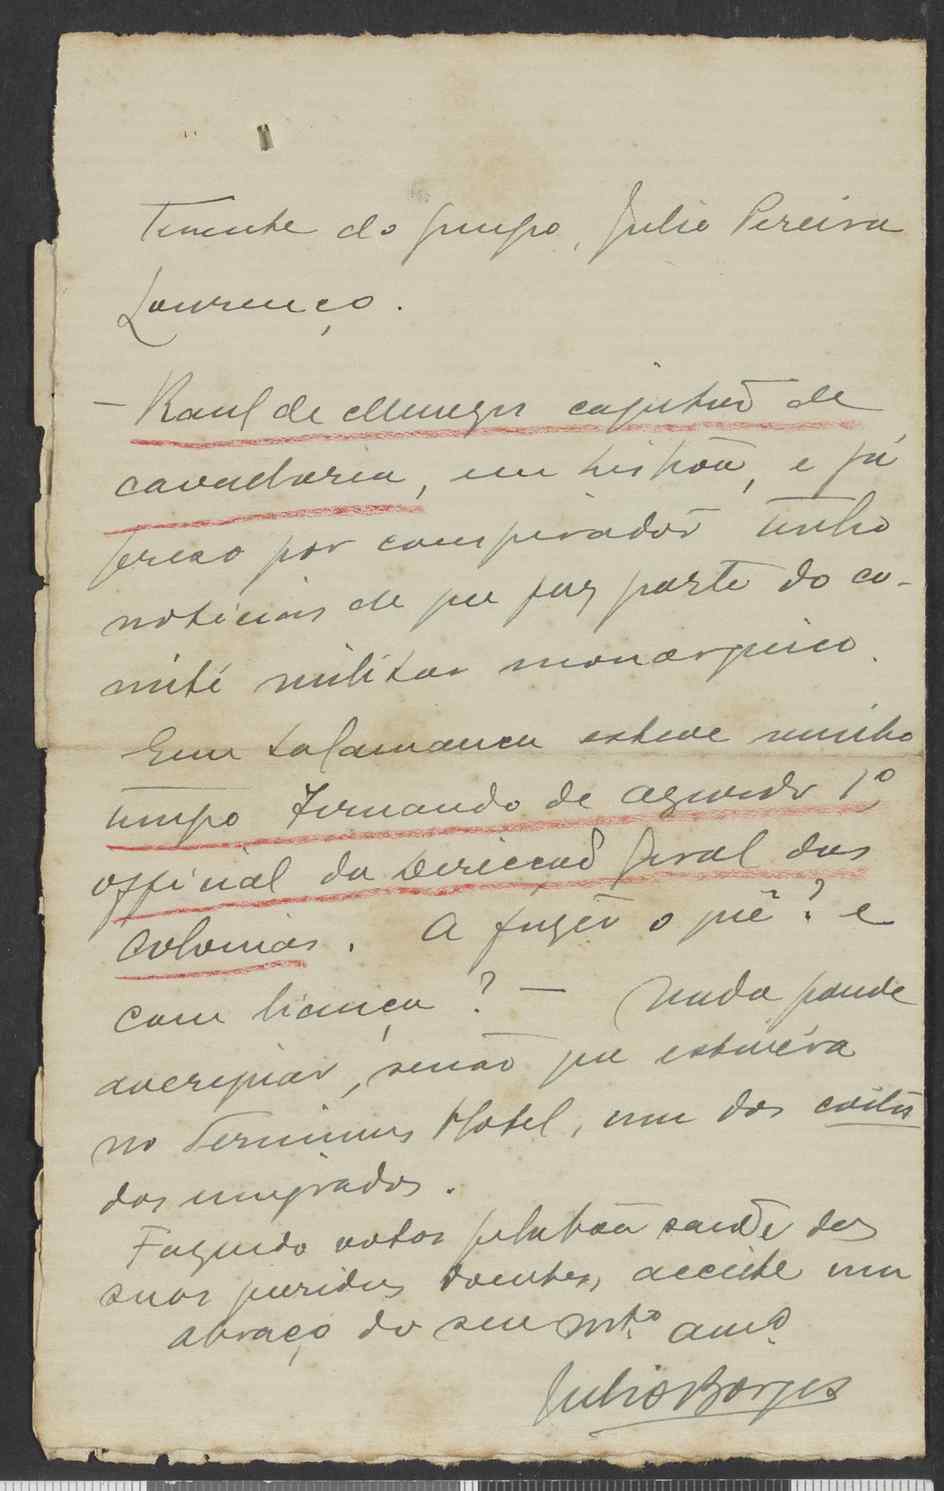 Tenente do grupo, Julio Pereira
Lourenço.
— Raul de Menezes capitão de
cavallaria, em Lisbôa, e já
preso por conspirador tenho
noticias de que faz parte do co-
mité militar monarquico.
Em Salamanca esteve muito
tempo Fernando de Azevedo 1º
official da Direcção Geral das
Colonias. A fazer o quê? e
com licença? — Nada poude
averiguar, senão que estivéra
no Terminus Hotel, um dos coitos
dos emigrados.
Fazendo votos pela bôa saude dos
suas queridas doentes, acceite um
abraço do seu mtº amº
Julio Borges